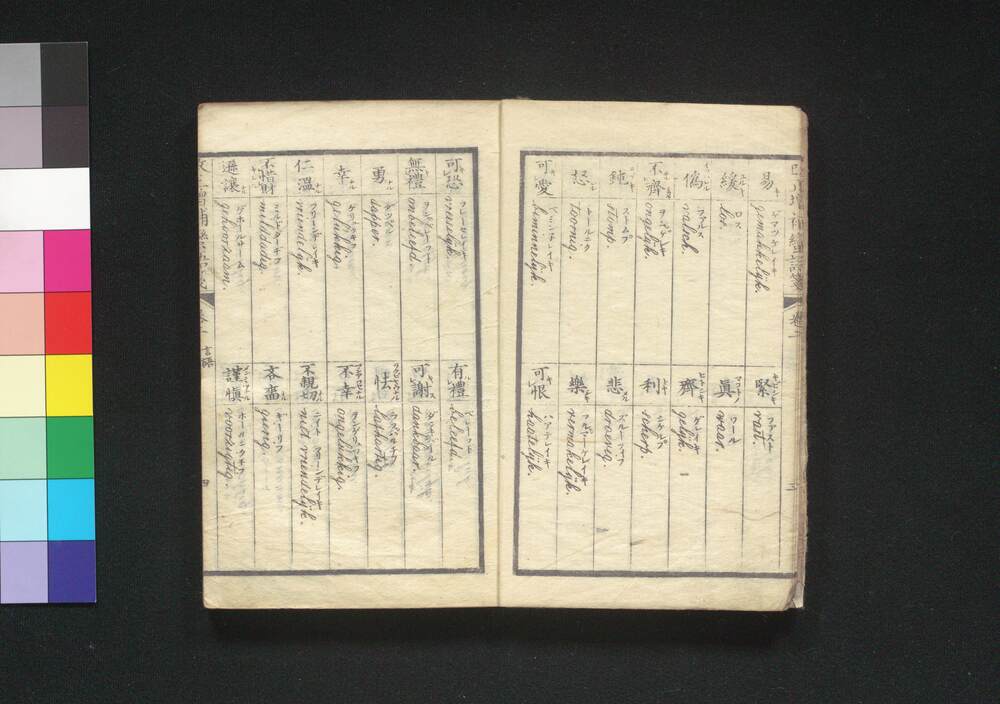 易
ゲマッケレイキ
gemakkelyk.
緩
ロス
los.
僞
ファルス
valsch.
不齊
ヲンゲレイキ
ongelyk.
鈍
ストムプ
stomp.
怒
トールニク
toornig.
可愛
ベミンネレイキ
beminnelyk.
緊
ファスト
vast.
眞
ワール
waar.
齊
ゲレイキ
gelyk.
利
シケルプ
scherp.
悲
ドルーフィフ
droevig.
樂
フルマーケレイキ
vermakelyk.
可恨
ハアテレイキ
haatelyk.
可恐
フレーセレイキ
vreeselyk.
無禮
ヲンベレーフド
onbeleefd.
勇
ダッブル
dapper.
幸
ゲリュッキフ
gelukkig.
仁溫
フリーンデレイキ
vriendelyk.
不惜財
ミルドダーディフ
milddadig.
遜讓
ゲホールサーム
gehoorzaam.
有禮
ベレーフド
beleefd.
可謝
ダンクバール
dankbaar.
怯
ラフハルティフ
lafhartig.
不幸
ヲンゲリュッキフ
ongelukkig.
不親切
ニート フリーンデレイキ
niet vriendelyk.
吝嗇
ギーリフ
gierig.
謹愼
ホールシクティフ
voorzigtig.
言語
四